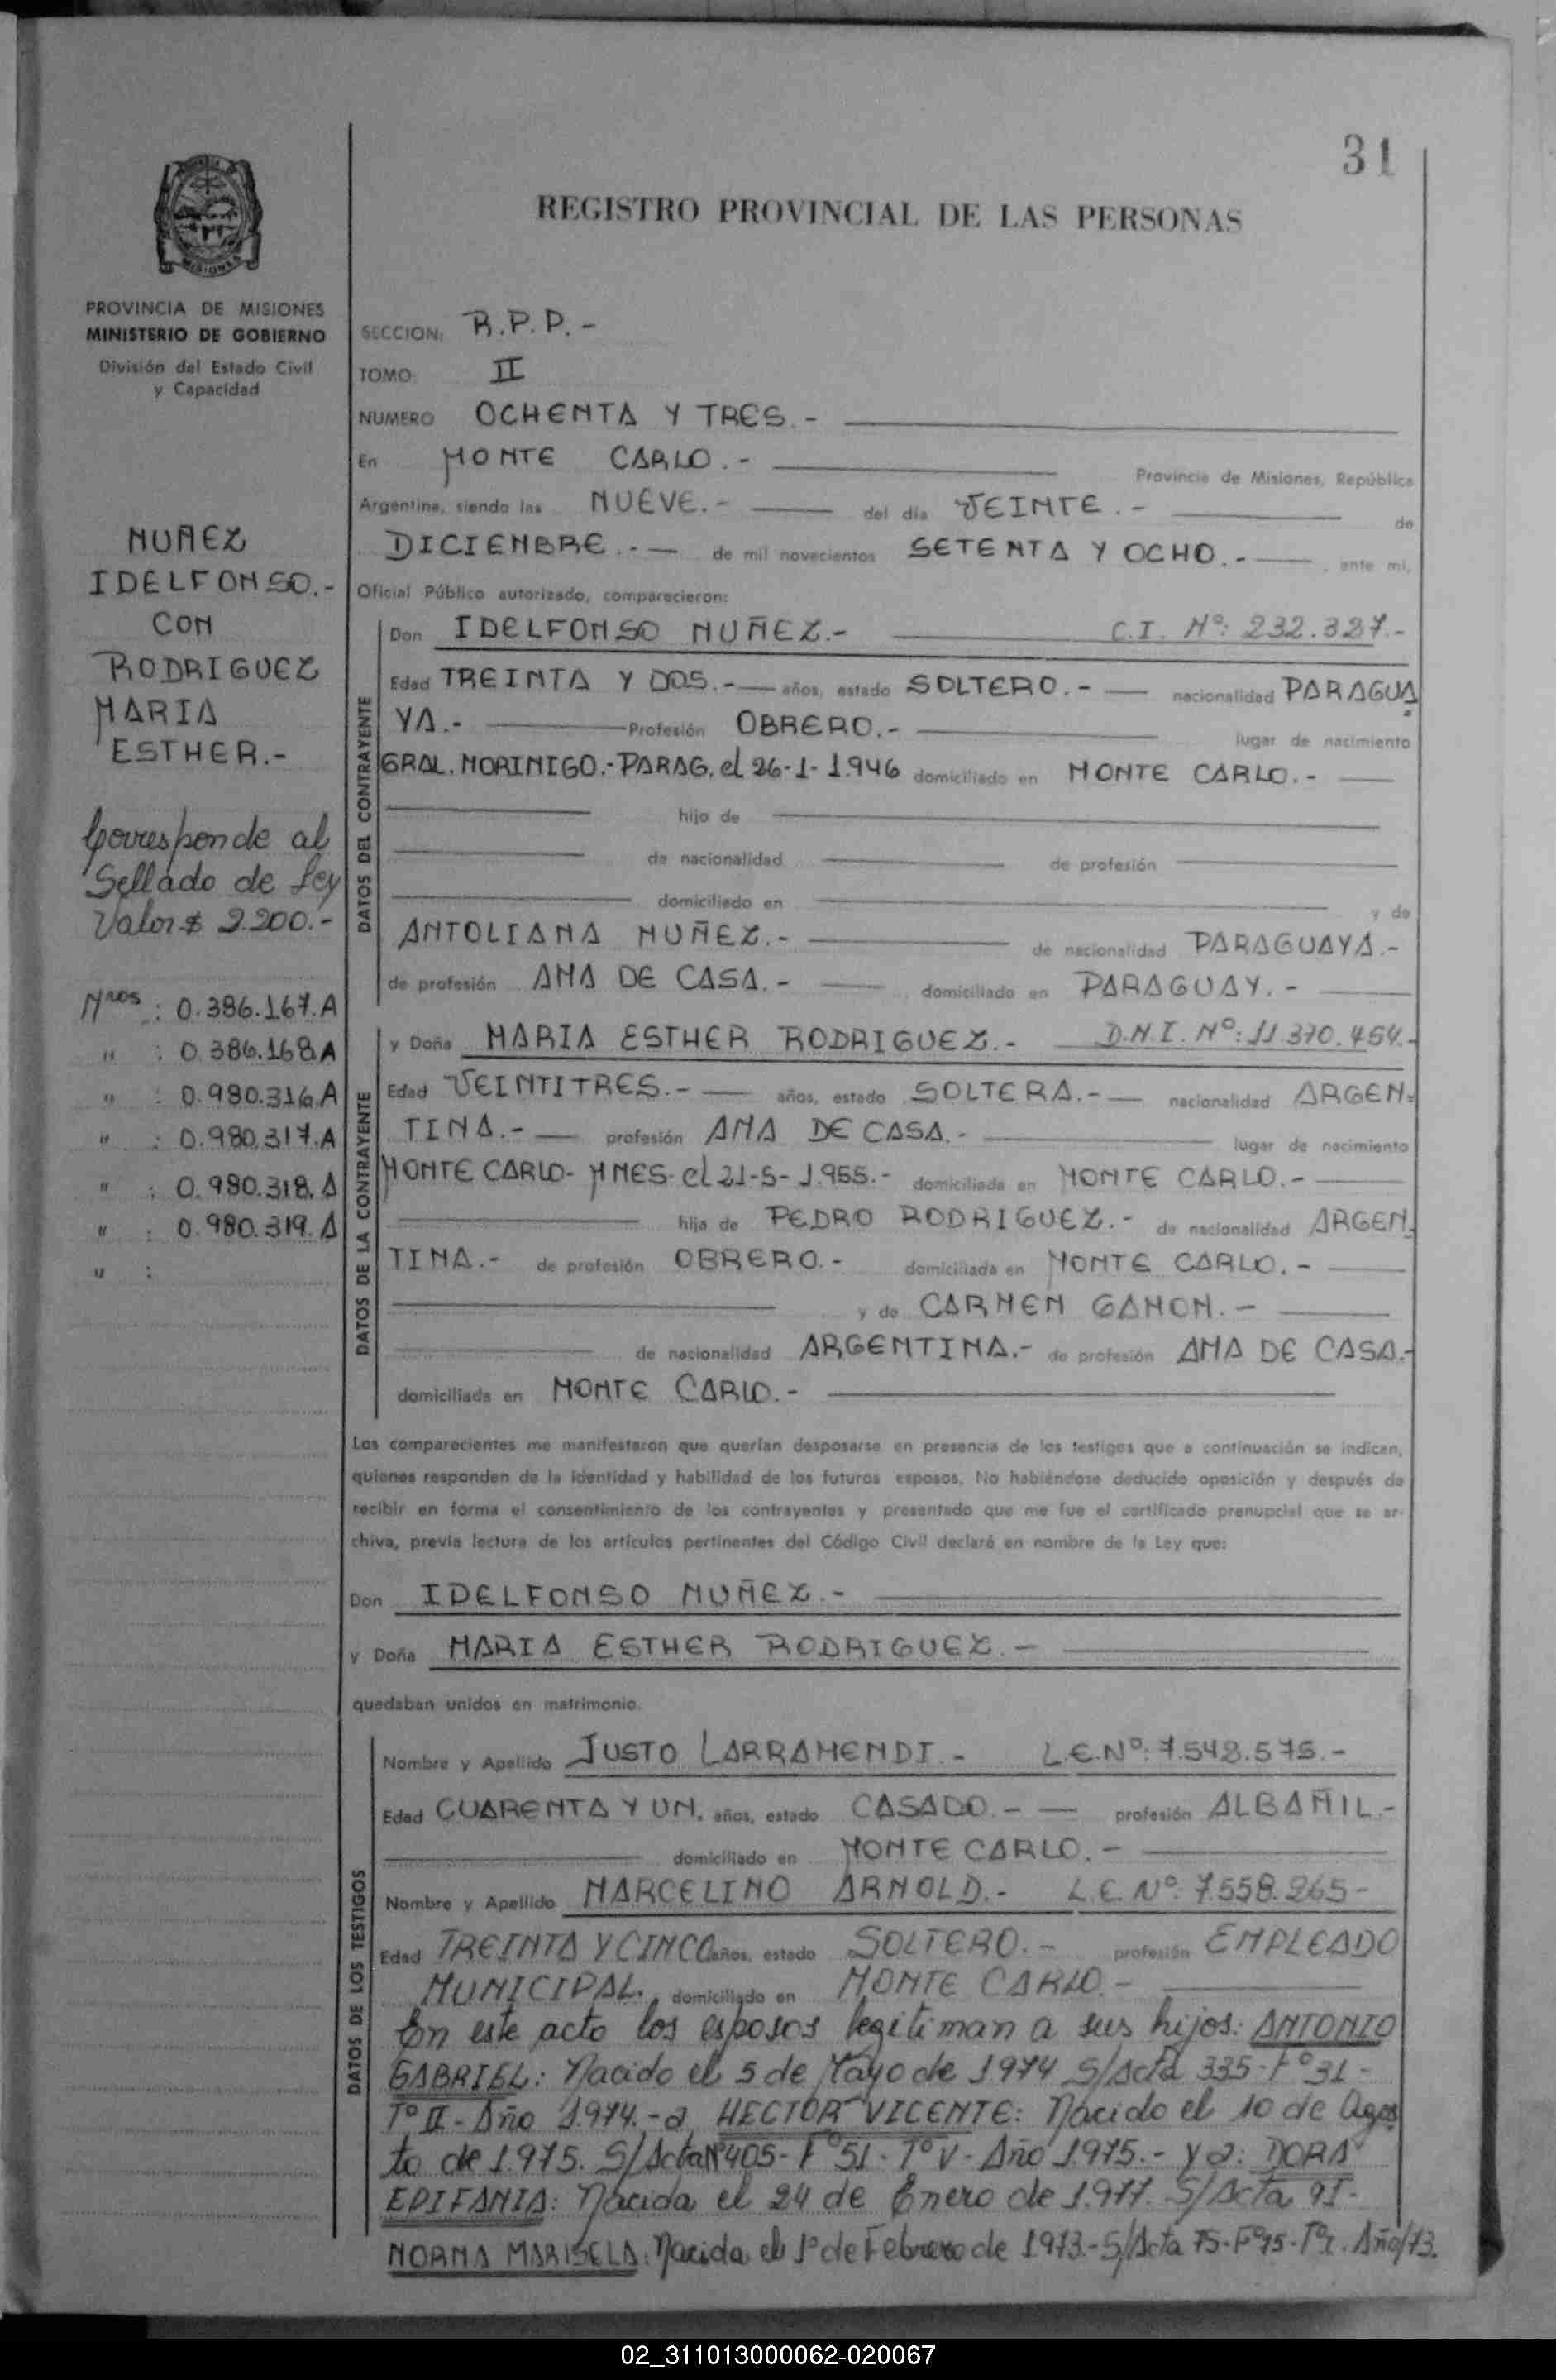 31
REGISTRO PROVINCIAL DE LAS PERSONAS
MISIONES
PROVINCIA DE MISIONES
MINISTERIO DE GOBIERNO
División del Estado Civil
y Capacidad
NUÑEZ
IDELFONSO.-
CON
RODRIGUEZ
MARIA
ESTHER.-
Corresponde al
Sellado de Ley
Valor $ 2.200.-
Nros : 0.386.167.A
" : 0.386.168.A
" : 0.980.316.A
" : 0.980.317.A
" : 0.980.318.A
" : 0.980.319.A
" :
SECCION: R.P.P.-
TOMO: II
NUMERO OCHENTA Y TRES.-
En MONTE CARLO.- Provincia de Misiones, República
Argentina, siendo las NUEVE.- del día VEINTE.- de
DICIEMBRE.- de mil novecientos SETENTA Y OCHO.- , ante mi,
Oficial Público autorizado, comparecieron:
DATOS DEL CONTRAYENTE
Don IDELFONSO NUÑEZ.- C.I. Nº: 232.327.-
Edad TREINTA Y DOS.- años, estado SOLTERO.- nacionalidad PARAGUA
YA.- Profesión OBRERO.- lugar de nacimiento
GRAL. MORINIGO.-PARAG. el 26-1-1.946 domiciliado en MONTE CARLO.-
hijo de
de nacionalidad de profesión
domiciliado en y de
ANTOLIANA NUÑEZ.- de nacionalidad PARAGUAYA.-
de profesión AMA DE CASA.- domiciliado en PARAGUAY.-
DATOS DE LA CONTRAYENTE
y Doña MARIA ESTHER RODRIGUEZ.- D.N.I. Nº: 11.370.454.-
Edad VEINTITRES.- años, estado SOLTERA.- nacionalidad ARGEN-
TINA.- profesión AMA DE CASA.- lugar de nacimiento
MONTE CARLO- MNES- el 21-5-1.955.- domiciliada en MONTE CARLO.-
hija de PEDRO RODRIGUEZ.- de nacionalidad ARGEN-
TINA.- de profesión OBRERO.- domiciliada en MONTE CARLO.-
y de CARMEN GAMON.-
de nacionalidad ARGENTINA.- de profesión AMA DE CASA.-
domiciliada en MONTE CARLO.-
Los comparecientes me manifestaron que querían desposarse en presencia de los testigos que a continuación se indican,
quienes responden de la identidad y habilidad de los futuros esposos. No habiéndose deducido oposición y después de
recibir en forma el consentimiento de los contrayentes y presentado que me fue el certificado prenupcial que se ar-
chiva, previa lectura de los artículos pertinentes del Código Civil declaré en nombre de la Ley que:
Don IDELFONSO NUÑEZ.-
y Doña MARIA ESTHER RODRIGUEZ.-
quedaban unidos en matrimonio.
DATOS DE LOS TESTIGOS
Nombre y Apellido JUSTO LARRAMENDI.- L.E.Nº: 7.548.575.-
Edad CUARENTA Y UN. años, estado CASADO.- profesión ALBAÑIL.-
domiciliado en MONTE CARLO.-
Nombre y Apellido MARCELINO ARNOLD.- L.E.Nº: 7.558.265-
Edad TREINTA Y CINCO años, estado SOLTERO.- profesión EMPLEADO
MUNICIPAL., domiciliado en MONTE CARLO.-
En este acto los esposos legitiman a sus hijos: ANTONIO
GABRIEL: Nacido el 5 de Mayo de 1974 S/Acta 335-Fº31-
TºII-Año 1.974.-a HECTOR VICENTE: Nacido el 10 de Agos
to de 1.975. S/Acta Nº405-Fº51-TºV-Año 1975.- y a: DORA
EPIFANIA: Nacida el 24 de Enero de 1.977. S/Acta 91-
NORMA MARISELA: Nacida el 1º de Febrero de 1973.-S/Acta 75-Fº75-Tº1. Año/73.
02_311013000062-020067